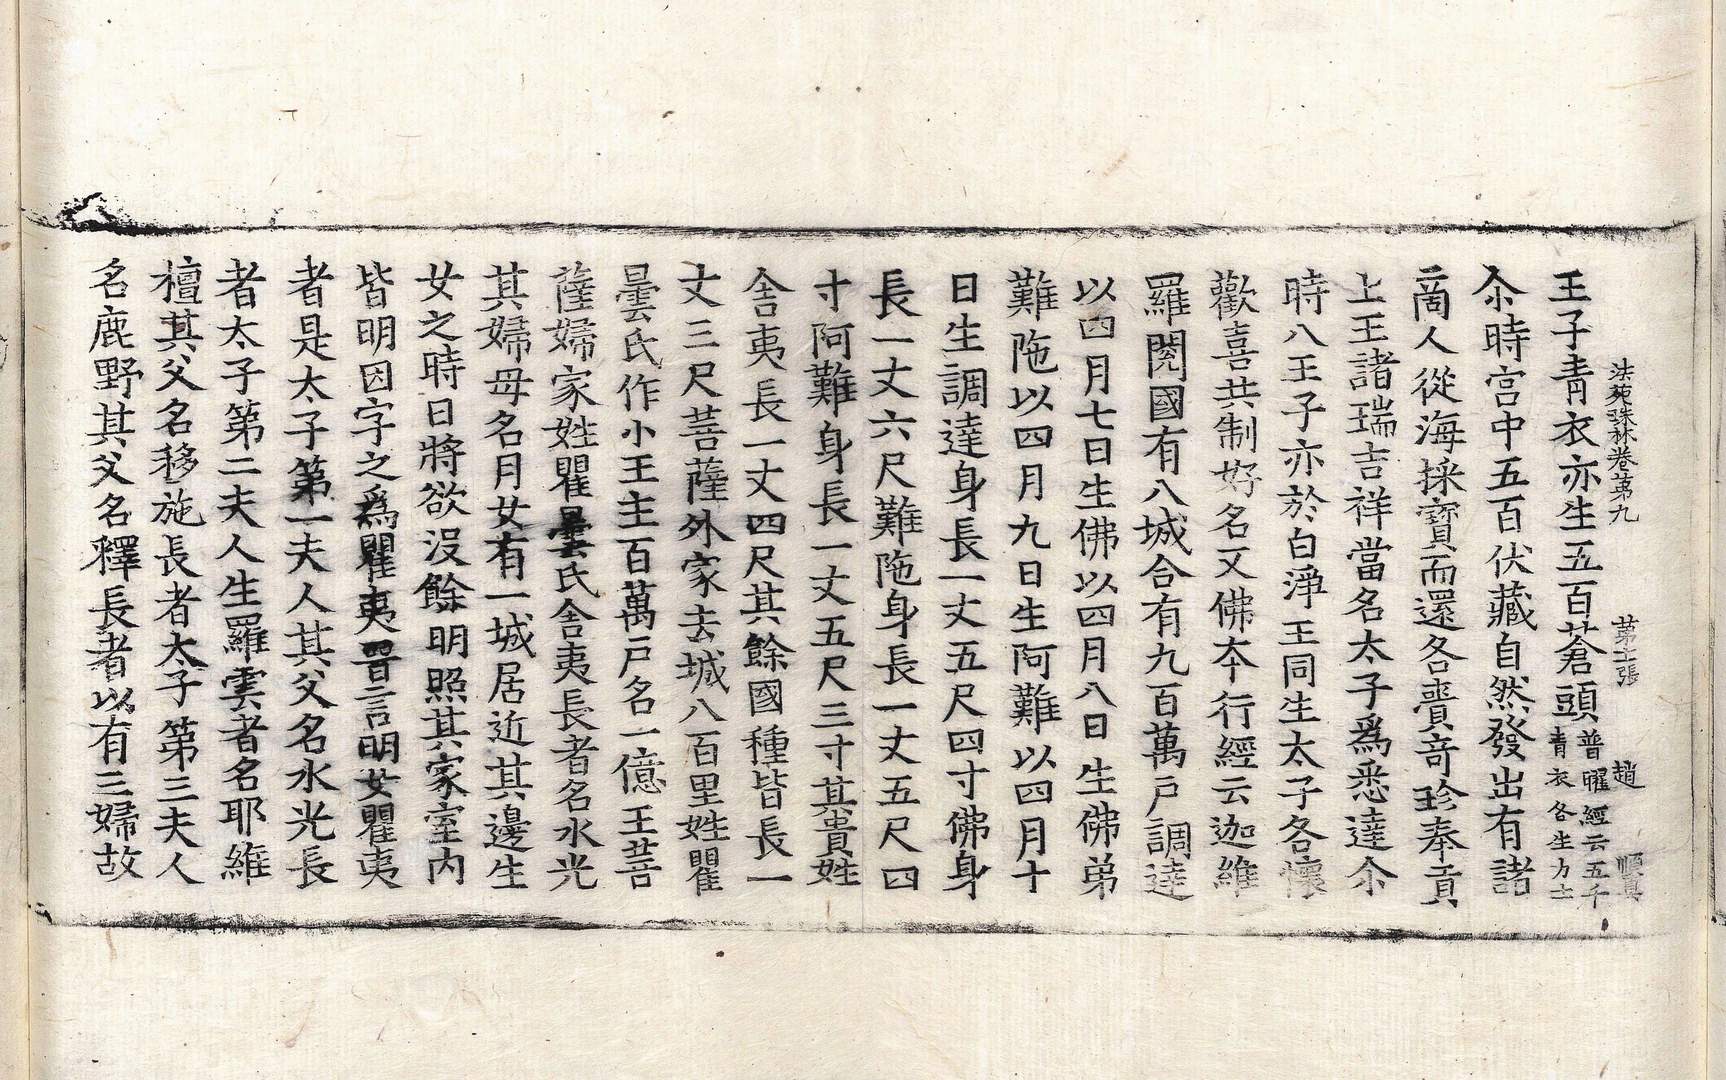 法苑珠林卷第九　第十二張　趙　順真
王子青衣亦生五百蒼頭普曜經云五千青衣各生力士
尒時宫中五百伏藏自然發出有諸
啇人從海採寶而還各賷竒珎奉貢
上王諸瑞吉祥當名太子爲悉達尒
時八王子亦於白淨王同生太子各懷
歡喜共制好名又佛夲行經云迦維
羅閱國有八城合有九百萬戸調達
以四月七日生佛以四月八日生佛弟
難陁以四月九日生阿難以四月十
日生調達身長一丈五尺四寸佛身
長一丈六尺難陁身長一丈五尺四
寸阿難身長一丈五尺三寸其貴姓
舎夷長一丈四尺其餘國種皆長一
丈三尺菩薩外家去城八百里姓瞿
曇氏作小王主百萬戸名一億王菩
薩婦家姓瞿曇氏舎夷長者名水光
其婦母名月女有一城居近其邊生
女之時日將欲没餘明照其家室内
皆明因字之爲瞿夷晋言明女瞿夷
者是太子第一夫人其父名水光長
者太子第二夫人生羅雲者名耶維
檀其父名移施長者太子第三夫人
名鹿野其父名釋長者以有三婦故